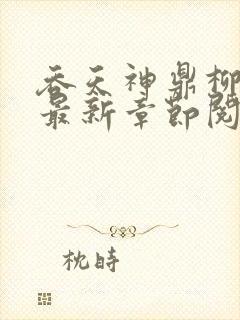 吞天神鼎柳
最新章节阅
枕時